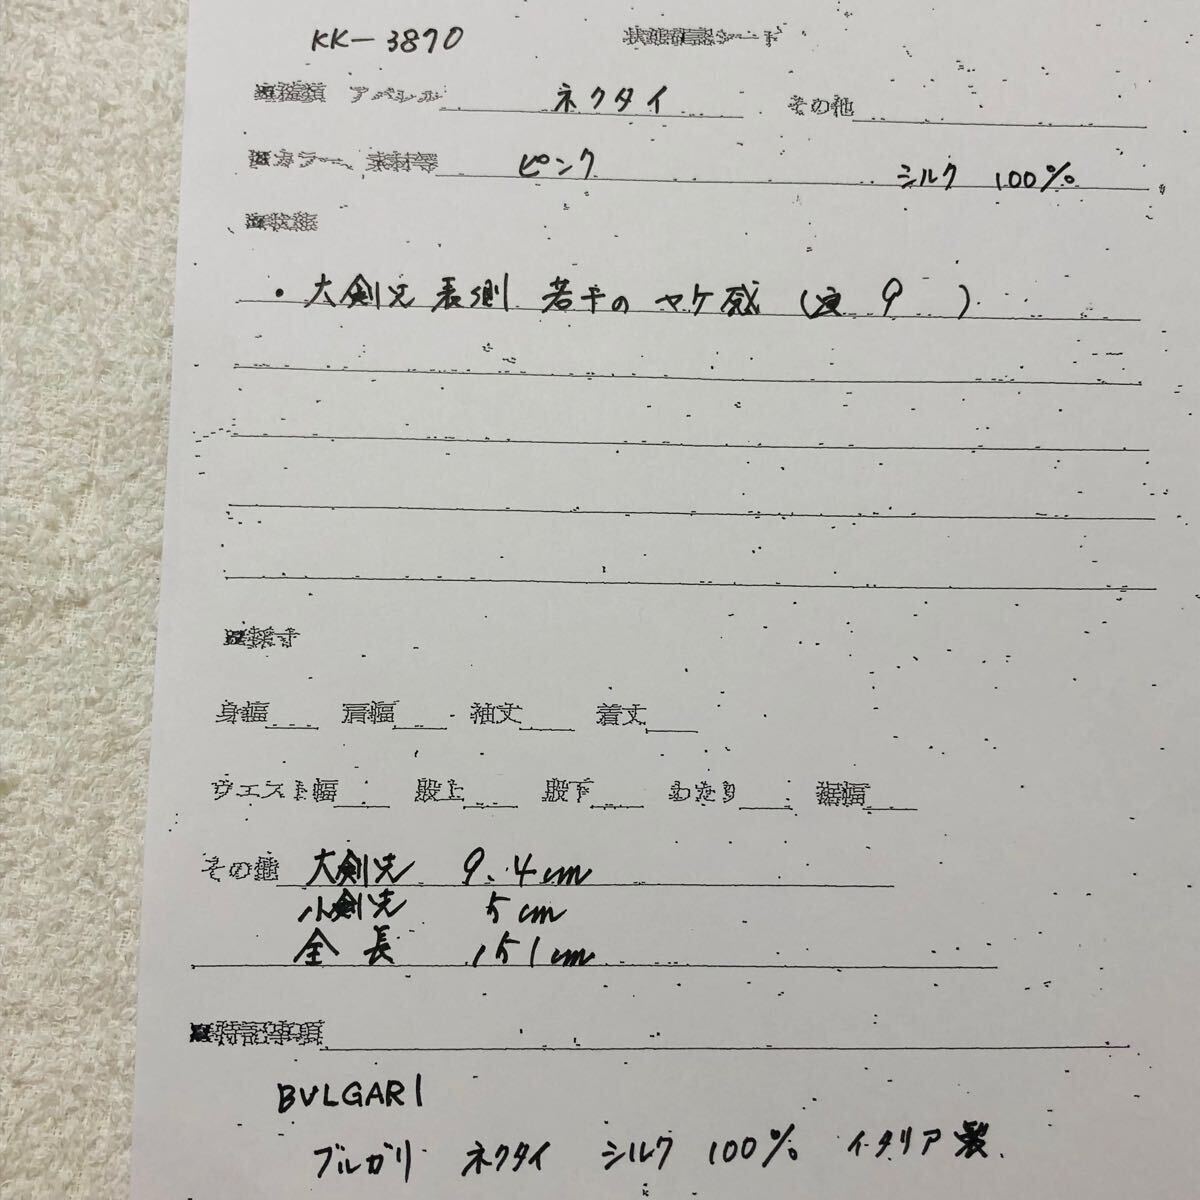 KK-3870 状態確認シート
■種類 アパレル ネクタイ その他
■カラー、素材等 ピンク シルク 100%
■状態
・大剣先 表側 若干の ヤケ感 ( 9 )
■採寸
身幅 肩幅 袖丈 着丈
ウエスト幅 股上 股下 わたり 裾幅
その他 大剣先 9.4cm
小剣先 5cm
全長 151cm
■特記事項
BVLGARI
ブルガリ ネクタイ シルク 100% イタリア製